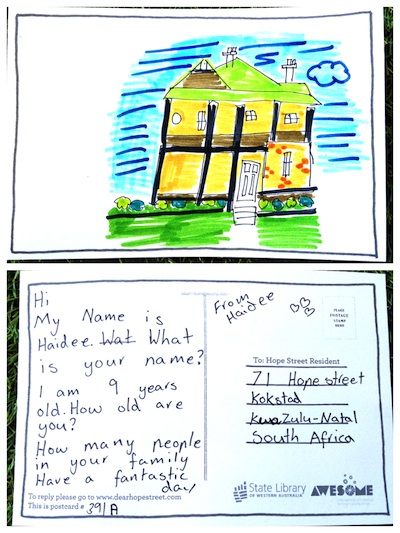 Hi
My Name is
Haidee. Wat What
is your name?
I am 9 years
old. How old are
you?
How many people
in your family
Have a fantastic
day
To reply please go to www.dearhopestreet.com
This is postcard # 391A
From
Haidee
PLACE
POSTAGE
STAMP
HERE
To: Hope Street Resident
71 Hope street
Kokstad
KwaZulu-Natal
South Africa
State Library
OF WESTERN AUSTRALIA
AWESOME